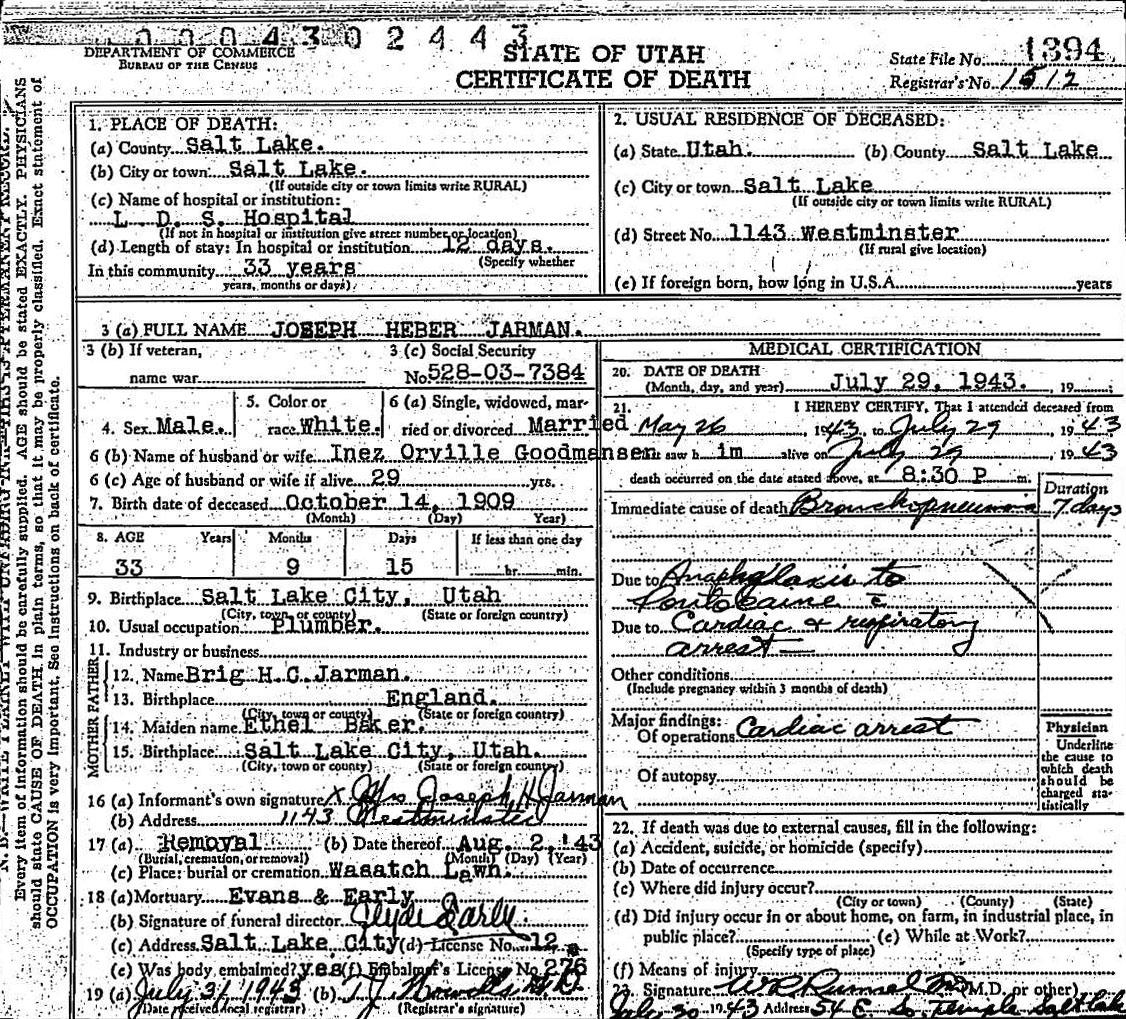 0004302443
DEPARTMENT OF COMMERCE
BUREAU OF THE CENSUS
STATE OF UTAH
CERTIFICATE OF DEATH
State File No. 1394
Registrar's No. 1512
Every item of information should be carefully supplied. AGE should be stated EXACTLY. PHYSICIANS
should state CAUSE OF DEATH in plain terms, so that it may be properly classified. Exact statement of
OCCUPATION is very important. See instructions on back of certificate.
1. PLACE OF DEATH:
(a) County Salt Lake.
(b) City or town Salt Lake.
(If outside city or town limits write RURAL)
(c) Name of hospital or institution:
L. D. S. Hospital
(If not in hospital or institution give street number or location)
(d) Length of stay: In hospital or institution 12 days.
(Specify whether
In this community 33 years
years, months or days)
2. USUAL RESIDENCE OF DECEASED:
(a) State Utah. (b) County Salt Lake
(c) City or town Salt Lake
(If outside city or town limits write RURAL)
(d) Street No. 1143 Westminster
(If rural give location)
(e) If foreign born, how long in U.S.A. years
3 (a) FULL NAME JOSEPH HEBER JARMAN.
3 (b) If veteran,
name war
3 (c) Social Security
No. 528-03-7384
4. Sex Male.
5. Color or
race White.
6 (a) Single, widowed, mar-
ried or divorced Married
6 (b) Name of husband or wife Inez Orville Goodmansen
6 (c) Age of husband or wife if alive 29 yrs.
7. Birth date of deceased October 14, 1909
(Month) (Day) Year)
8. AGE Years Months Days If less than one day
33 9 15 hr. min.
9. Birthplace Salt Lake City, Utah
(City, town or county) (State or foreign country)
10. Usual occupation Plumber.
11. Industry or business
FATHER
12. Name Brig H.C.Jarman.
13. Birthplace England.
(City, town or county) (State or foreign country)
MOTHER
14. Maiden name Ethel Baker.
15. Birthplace Salt Lake City, Utah.
(City, town or county) (State or foreign country)
16 (a) Informant's own signature x Mrs Joseph H Jarman
(b) Address 1143 Westminster
17 (a) Removal (b) Date thereof Aug. 2, '43
(Burial, cremation, or removal) (Month) (Day) (Year)
(c) Place: burial or cremation Wasatch Lawn.
18 (a) Mortuary Evans & Early
(b) Signature of funeral director Clyde Early
(c) Address Salt Lake City (d) License No. 12
(e) Was body embalmed? yes (f) Embalmer's License No. 276
19 (a) July 31 1943 (b) T J Howells M.D.
(Date received local registrar) (Registrar's signature)
MEDICAL CERTIFICATION
20. DATE OF DEATH
(Month, day, and year) July 29, 1943. , 19
21. I HEREBY CERTIFY, That I attended deceased from
May 26 1943, to July 29, 1943
saw him alive on July 29, 1943
death occurred on the date stated above, at 8:30 P m.
Duration
Immediate cause of death Bronchopneumonia 7 days
Due to Anaphylaxis to
Pontocaine c
Due to Cardiac & respiratory
arrest
Other conditions
(Include pregnancy within 3 months of death)
Major findings:
Of operations Cardiac arrest
Of autopsy
Physician
Underline
the cause to
which death
should be
charged sta-
tistically
22. If death was due to external causes, fill in the following:
(a) Accident, suicide, or homicide (specify)
(b) Date of occurrence
(c) Where did injury occur?
(City or town) (County) (State)
(d) Did injury occur in or about home, on farm, in industrial place, in
public place? (e) While at Work?
(Specify type of place)
(f) Means of injury
23. Signature W R Rumel M (M.D. or other)
July 30 1943 Address 54 E. So. Temple Salt Lake